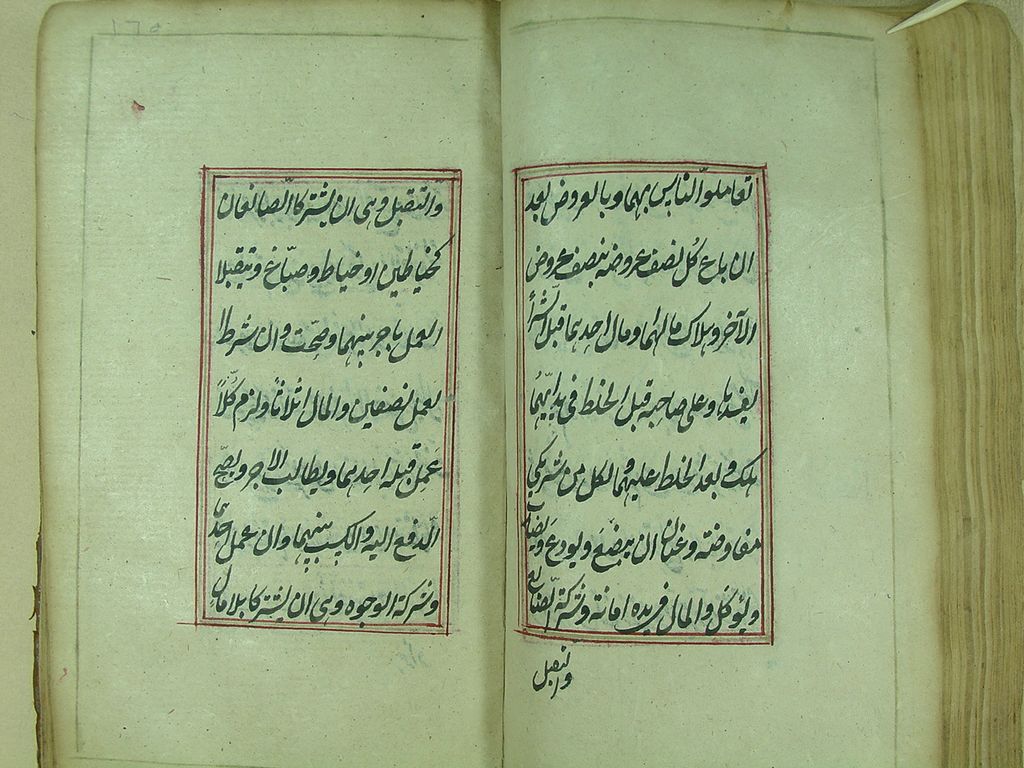 تعاملوا الناس بهما وبالعروض بعد
ان باع كل نصف عروضه بنصف عروض
الآخر وهلاك مالهما ومال احدهما قبل الشراء
يفسدها وعلى صاحبه قبل الخلط في يد ايهما
هلك وبعد الخلط عليهما ولكل من شريكي
مفاوضة وعنان ان يبضع ويودع ويضارب
ويوكل والمال في يده امانة وشركة الصنائع
والتقبل
١٦٥
والتقبل وهي ان يشتركا الصانعان
كخياطين او خياط وصباغ ويتقبلا
العمل باجر بينهما وصحت وان شرطا
لعمل نصفين والمال اثلاثا ولزم كلا
عمل قبله احدهما ويطالب الاجر ويصح
الدفع اليه والكسب بينهما وان عمل احدهما
وشركة الوجوه وهي ان يشتركا بلا مال